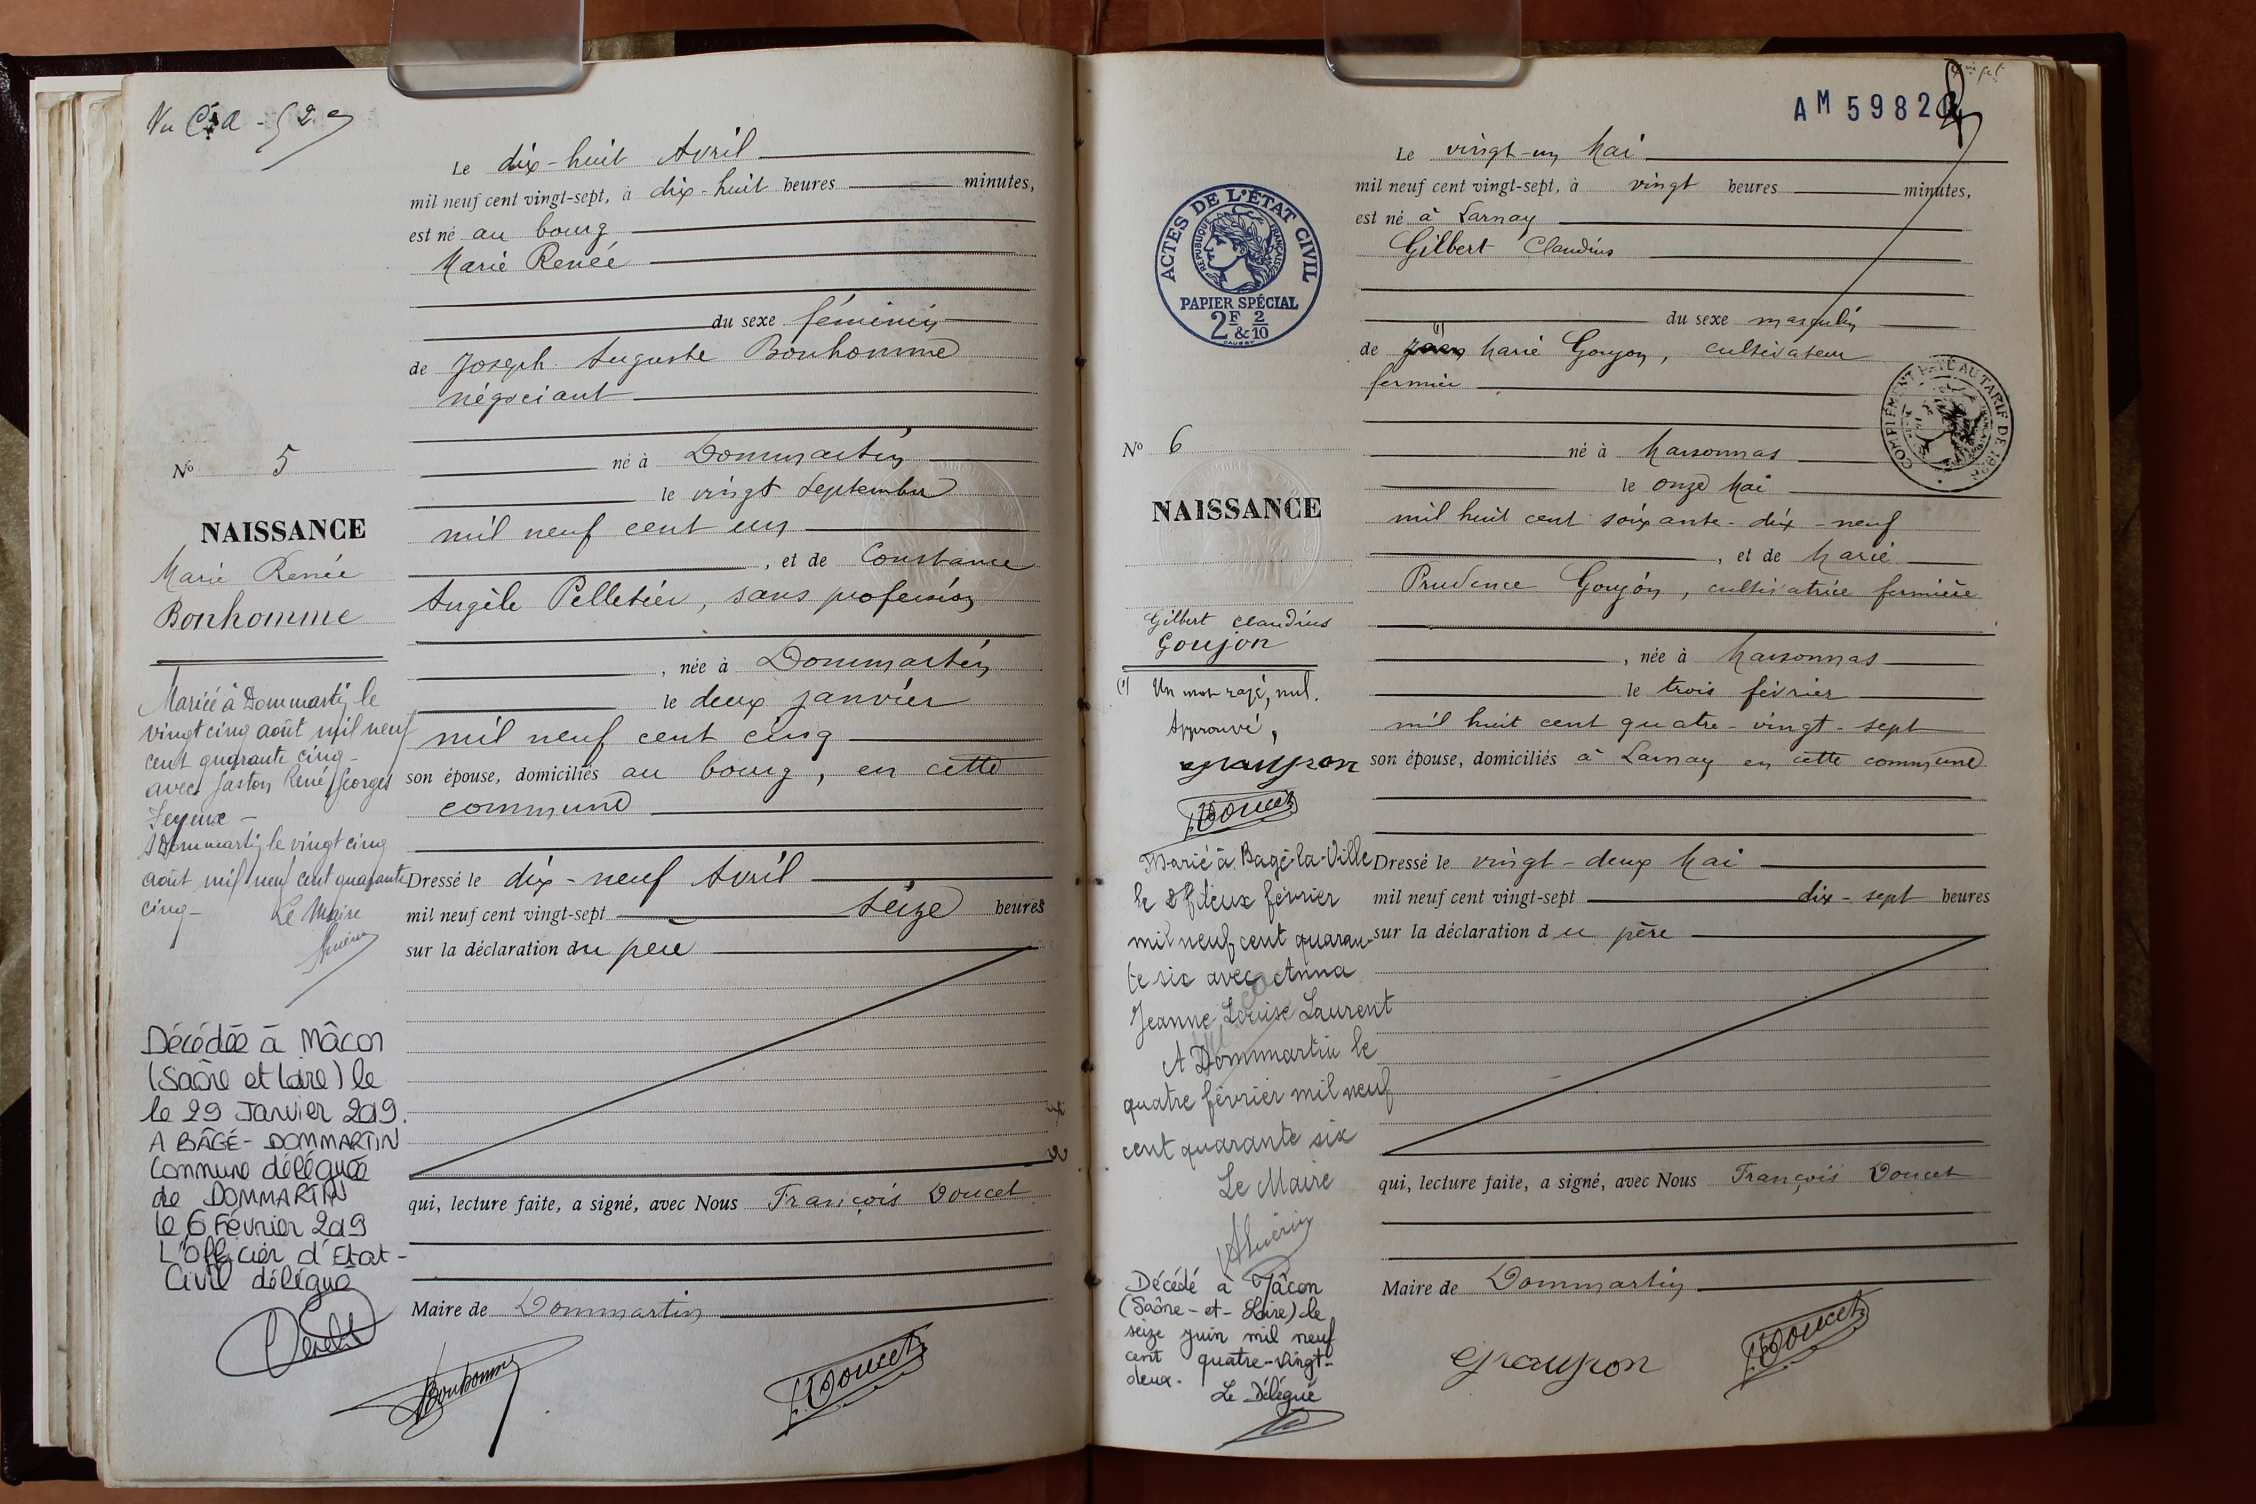 Vu
Le dix-huit Avril
mil neuf cent vingt-sept, à dix-huit heures minutes,
est né au bourg
Marie Renée
du sexe féminin
de Joseph Auguste Bonhomme
négociant
né à Dommartin
le vingt septembre
mil neuf cent un
, et de Constance
Angèle Pelletier, sans profession
, née à Dommartin
le deux janvier
mil neuf cent cinq
son épouse, domiciliés au bourg, en cette
commune
Dressé le dix-neuf Avril
mil neuf cent vingt-sept seize heures
sur la déclaration du père
qui, lecture faite, a signé, avec Nous François Doucet
Maire de Dommartin
Bonhomme
F. Doucet
No 5
NAISSANCE
Marie Renée
Bonhomme
Mariée à Dommartin le
vingt cinq août mil neuf
cent quarante cinq -
avec Gaston René Georges
Dommartin le vingt cinq
août mil neuf cent quarante
cinq - Le Maire
Guérin
Décédée à Mâcon
(Saône et Loire) le
le 29 Janvier 2019.
A BÂGÉ-DOMMARTIN
Commune déléguée
de DOMMARTIN
le 6 Février 2019
L'Officier d'Etat-
Civil délégué
AM 5982
Le vingt-un Mai
mil neuf cent vingt-sept, à vingt heures minutes,
est né à Larnay
Gilbert Claudius
du sexe masculin
(1)
de Marie Goujon, cultivateur
fermier
né à Marsonnas
le onze Mai
mil huit cent soixante-dix-neuf
, et de Marie
Prudence Goujon, cultivatrice fermière
, née à Marsonnas
le trois février
mil huit cent quatre-vingt-sept
son épouse, domiciliés à Larnay en cette commune
Dressé le vingt-deux Mai
mil neuf cent vingt-sept dix-sept heures
sur la déclaration du père
qui, lecture faite, a signé, avec Nous François Doucet
Maire de Dommartin
Goujon
F. Doucet
ACTES DE L'ÉTAT CIVIL
RÉPUBLIQUE FRANÇAISE
PAPIER SPÉCIAL
2F & 2/10
COMPLÉMENT PAYÉ AU TARIF DE 1926
No 6
NAISSANCE
Gilbert Claudius
Goujon
(1) Un mot rayé, nul.
Approuvé,
Goujon
F. Doucet
Marié à Bagé-la-Ville
le deux février
mil neuf cent quaran-
te six avec Anna
Jeanne Louise Laurent
A Dommartin le
quatre février mil neuf
cent quarante six
Le Maire
Guérin
Décédé à Mâcon
(Saône-et-Loire) le
seize juin mil neuf
cent quatre-vingt-
deux.
Le Délégué